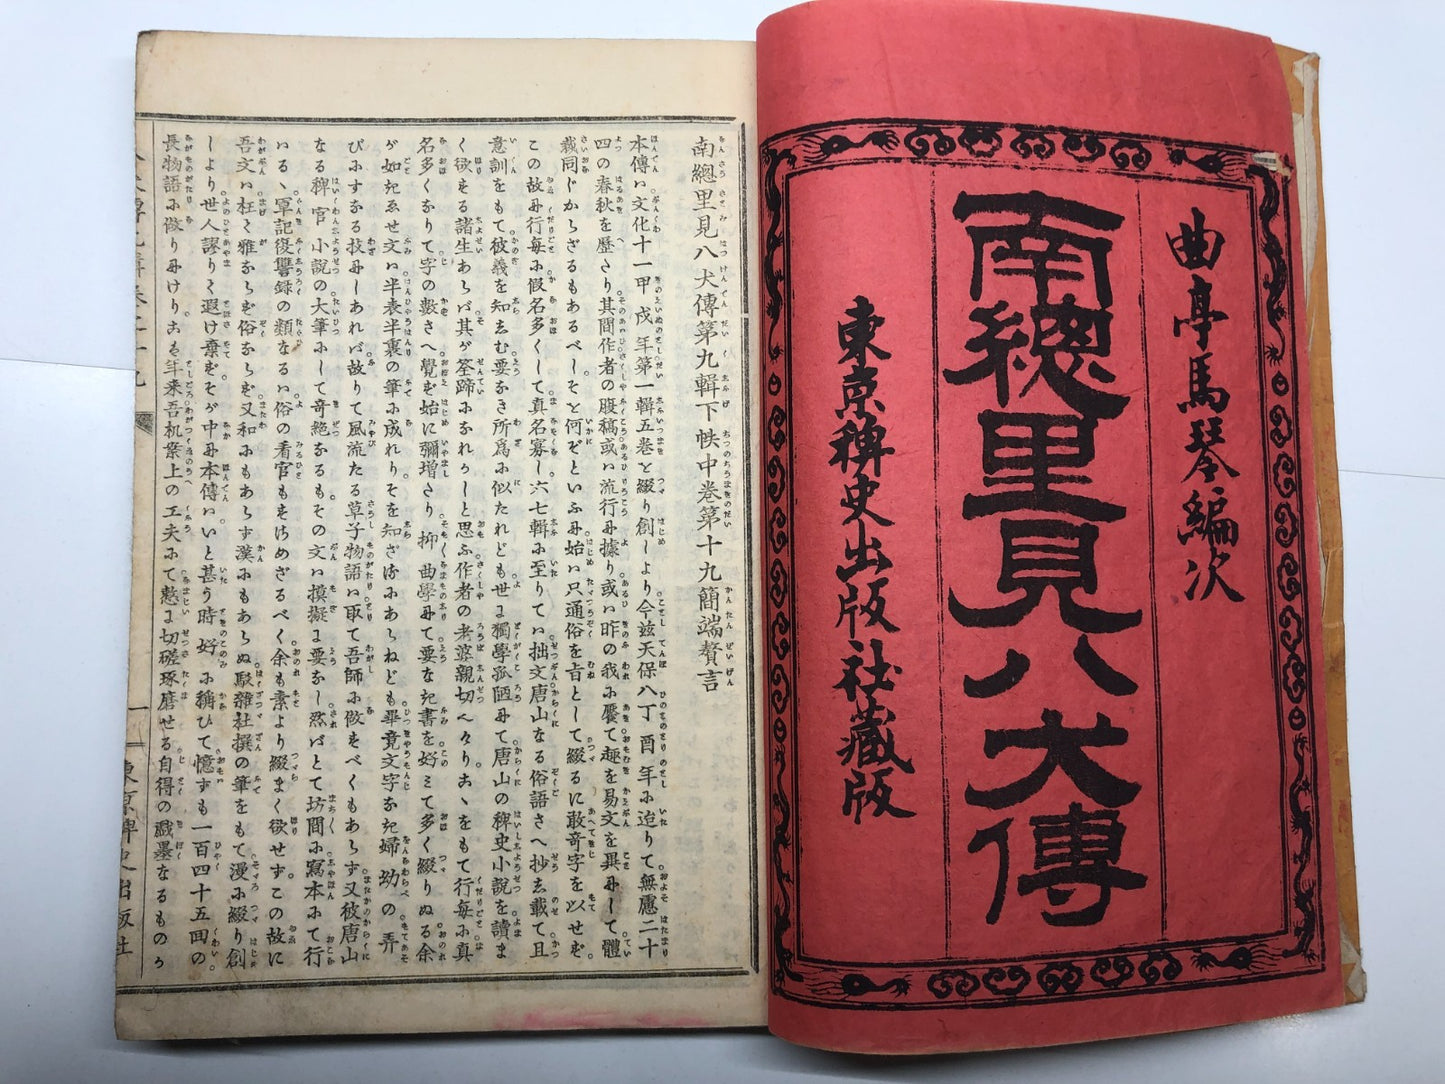 曲亭馬琴編次
南總里見八犬傳
東京稗史出版社藏版
南總里見八犬傳第九輯下帙中卷第十九簡端贅言
本傳ハ文化十一甲戌年第一輯五卷を綴り創しより今玆天保八丁酉年に迨りて無慮二十
四の春秋を歷たり其間作者の腹稿或ハ流行に據り或ハ昨の我に饜て趣を易文を異にして體
裁同じからざるもあるべしそを何ぞといふに始ハ只通俗を旨として綴るに敢奇字を以せず
この故に行每に假名多くして真名寡し六七輯に至りてハ拙文唐山なる俗語さへ抄し載て且
意訓をもて彼義を知しむ要なき所爲に似たれども世に獨學孤陋にて唐山の稗史小說を讀ま
く欲する諸生あらバ其が筌蹄になれかしと思ふ作者の老婆親切へ
名多くなりて字の數さへ覺ず始に彌增たり抑曲學にて要なき書を好みて多く綴りぬる余
が如きゑせ文ハ半表半裏の筆に成れりそを知ざるにあらねども畢竟文字なき婦幼の弄
びにすなる技にしあれバ故りて風流たる草子物語ハ取て吾師に做すべくもあらず又彼唐山
なる稗官小說の大筆にして奇絕なるもその文ハ摸擬に要なし然バとて坊間に寫本にて行
いるゝ軍記復讐錄の類なるハ俗の看官もすさめざるべく余も素より綴まく欲せずこの故に
吾文ハ枉て雅ならず俗ならず又和にもあらず漢にもあらぬ駁雜杜撰の筆をもて漫に綴り創
しより世人謬りて遐け棄ずそが中に本傳ハいと甚う時好に稱ひて憶ずも一百四十五回の
長物語に做りにけりこも年來吾机案上の工夫にて憖に切磋琢磨せる自得の戲墨なるものか
東京稗史出版社